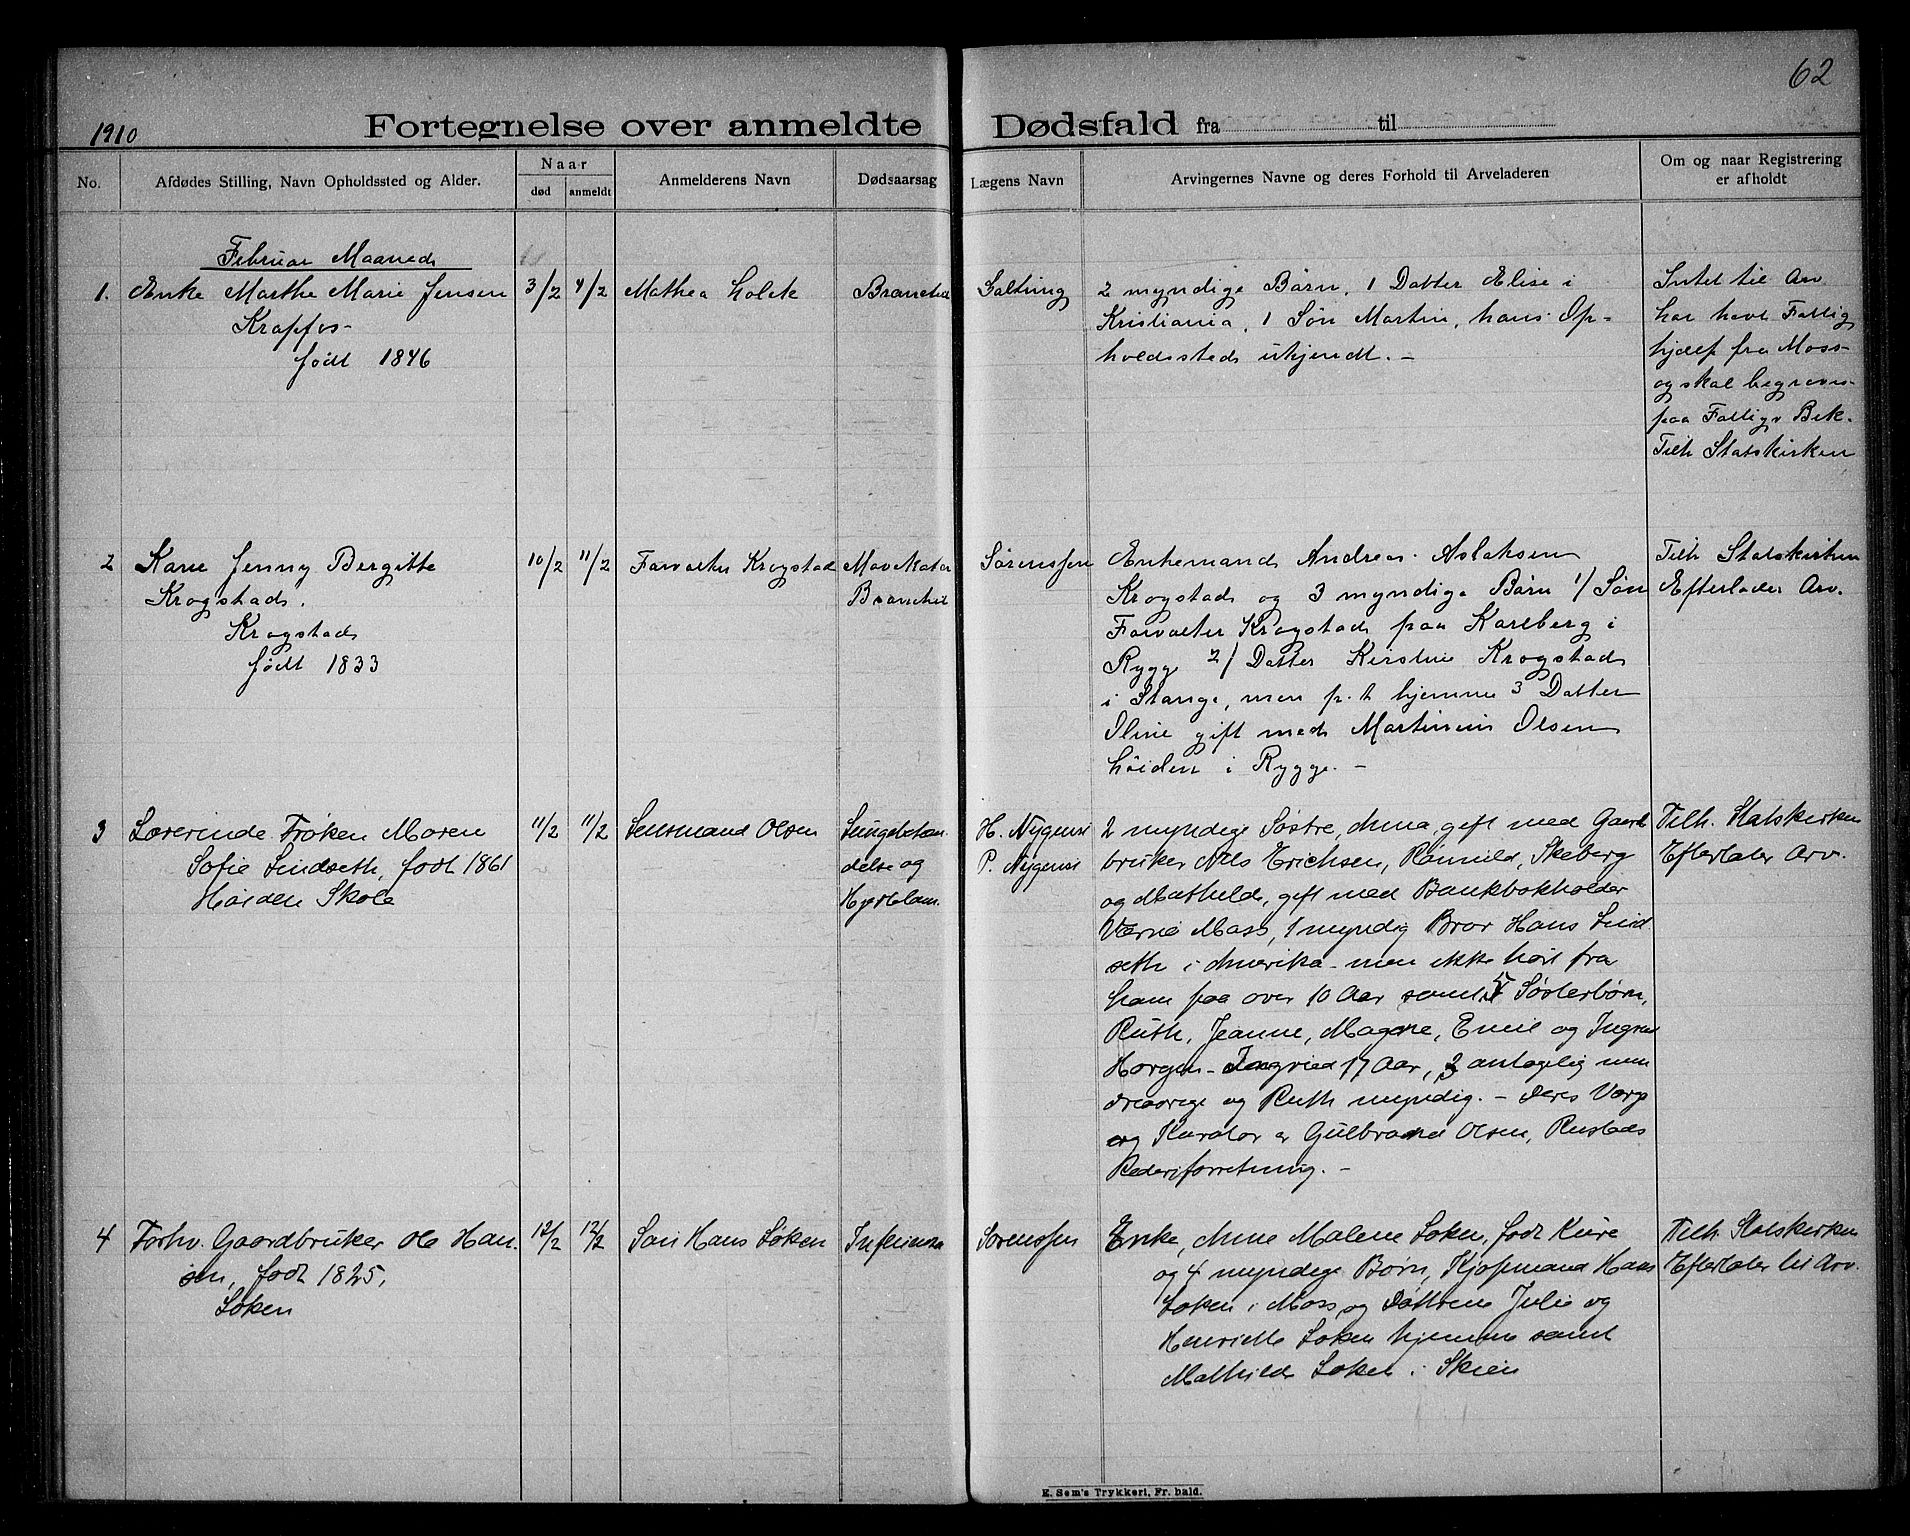 62
1910
Fortegnelse over anmeldte Dødsfald fra til
No.
Afdødes Stilling, Navn Opholdssted og Alder.
Naar
død
anmeldt
Anmelderens Navn
Dødsaarsag
Lægens Navn
Arvingernes Navne og deres Forhold til Arveladeren
Om og naar Registrering
er afholdt
Februar Maaned
1.
Enke Marthe Marie Jensen
Krapfos-
født 1846
3/2
4/2
Mathea Holek
Salting
2 myndige Børn, 1 Datter Elise i
Kristiania, 1 Søn Martin, hans Op-
holdssted ukjendt. -
Intet til Arv
har havt Fattig
hjælp fra Moss-
og skal begraves-
paa Fattigv Bek-
Tilh Statskirken
2
Karie Jenny Bergitte
Krogstad.
Krogstad
født 1833
10/2
11/2
Forvalter Krogstad
Sørenssen
Enkemand Andreas Aslaksen
Krogstad og 3 myndige Børn 1/ Søn
Forvalter Krogstad paa Karlberg i
Rygge 2/ Datter Kirstine Krogstad
i Stange, men p. t hjemme 3 Datter
Oline gift med Martinius Olsen
Høiden i Rygge. -
Tilh Statskirken
Efterlader Arv.
3
Lærerinde Frøken Maren
Sofie Lindseth, født 1861
Høiden Skole
11/2
11/2
Lensmand Olsen
Lungebetæn
delse og
Hjertelam.
H. Nygensi
P. Nygensi
2 myndige Søstre, Anna, gift med Gaard
bruker Nils Erichsen, Rømuld, Skeberg
og Mathilde, gift med Bankbokholder
Værne Moss, 1 myndig Bror Hans Lind
seth i Amerika - men ikke hørt fra
ham paa over 10 Aar samt 5 Søsterbørn,
Ruth, Jeanne, Magne, Emil og Ingrid
Horgen - Ingrid 17 Aar, 3 antagelig min
dreaarige og Ruth myndig. - Deres Værge
og Kurator er Gulbrand Olsen, Rustads
Rederiforretning. -
Tilh. Statskirken
Efterlater Arv.
4
Forhv. Gaardbruker Ole Han
sen, født 1825,
Løken
12/2
12/2
Søn Hans Løken
Influensa
Sørenssen
Enke, Anne Malene Løken, født Kure
og 4 myndige Børn, Kjøpmand Hans
Løken i Moss, og Døttrene Julie og
Henriette Løken hjemme samt
Mathilde Løken i Skien
Tilh. Statskirken
Efterlater til Arv.
E. Sem's Trykkeri, Fr. hald.